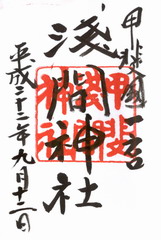 甲斐國一宮
淺間神社
平成二十二年九月十二日